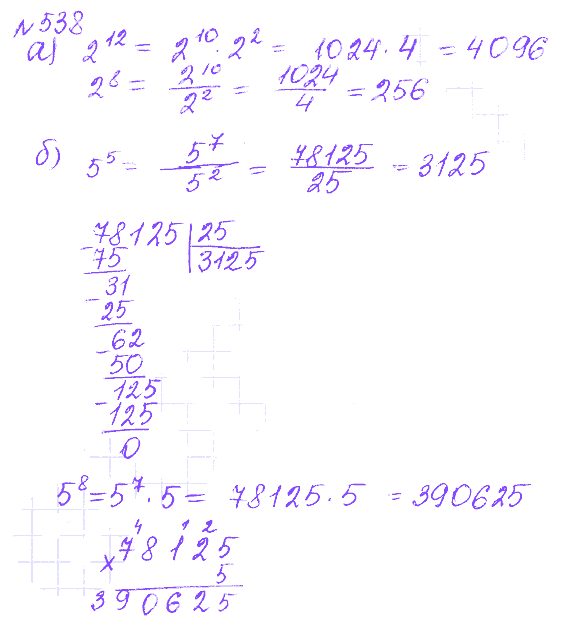 №538
а) 2¹² = 2¹⁰ · 2² = 1024 · 4 = 4096
2⁸ = 2¹⁰/2² = 1024/4 = 256
б) 5⁵ = 5⁷/5² = 78125/25 = 3125
78125 | 25
- 75 | 3125
31
- 25
62
- 50
125
- 125
0
5⁸ = 5⁷ · 5 = 78125 · 5 = 390625
4 1 2
× 78125
5
390625